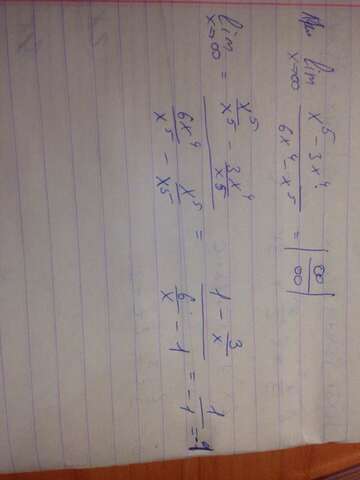 lim x→∞ (x⁵ - 3x⁴)/(6x⁴ - x⁵) = |∞/∞|
= lim x→∞ (x⁵/x⁵ - 3x⁴/x⁵)/(6x⁴/x⁵ - x⁵/x⁵) = (1 - 3/x)/(6/x - 1) = 1/-1 = -1